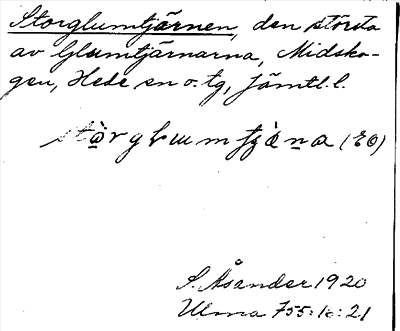 Storglumtjärnen, den största
av Glumtjärnarna, Midsko-
gen, Hede sn o. tg, Jämtl. l.
stò̱rglumtjä̀ṉa (EO)
S. Åsander 1920
Ulma 755:16:21